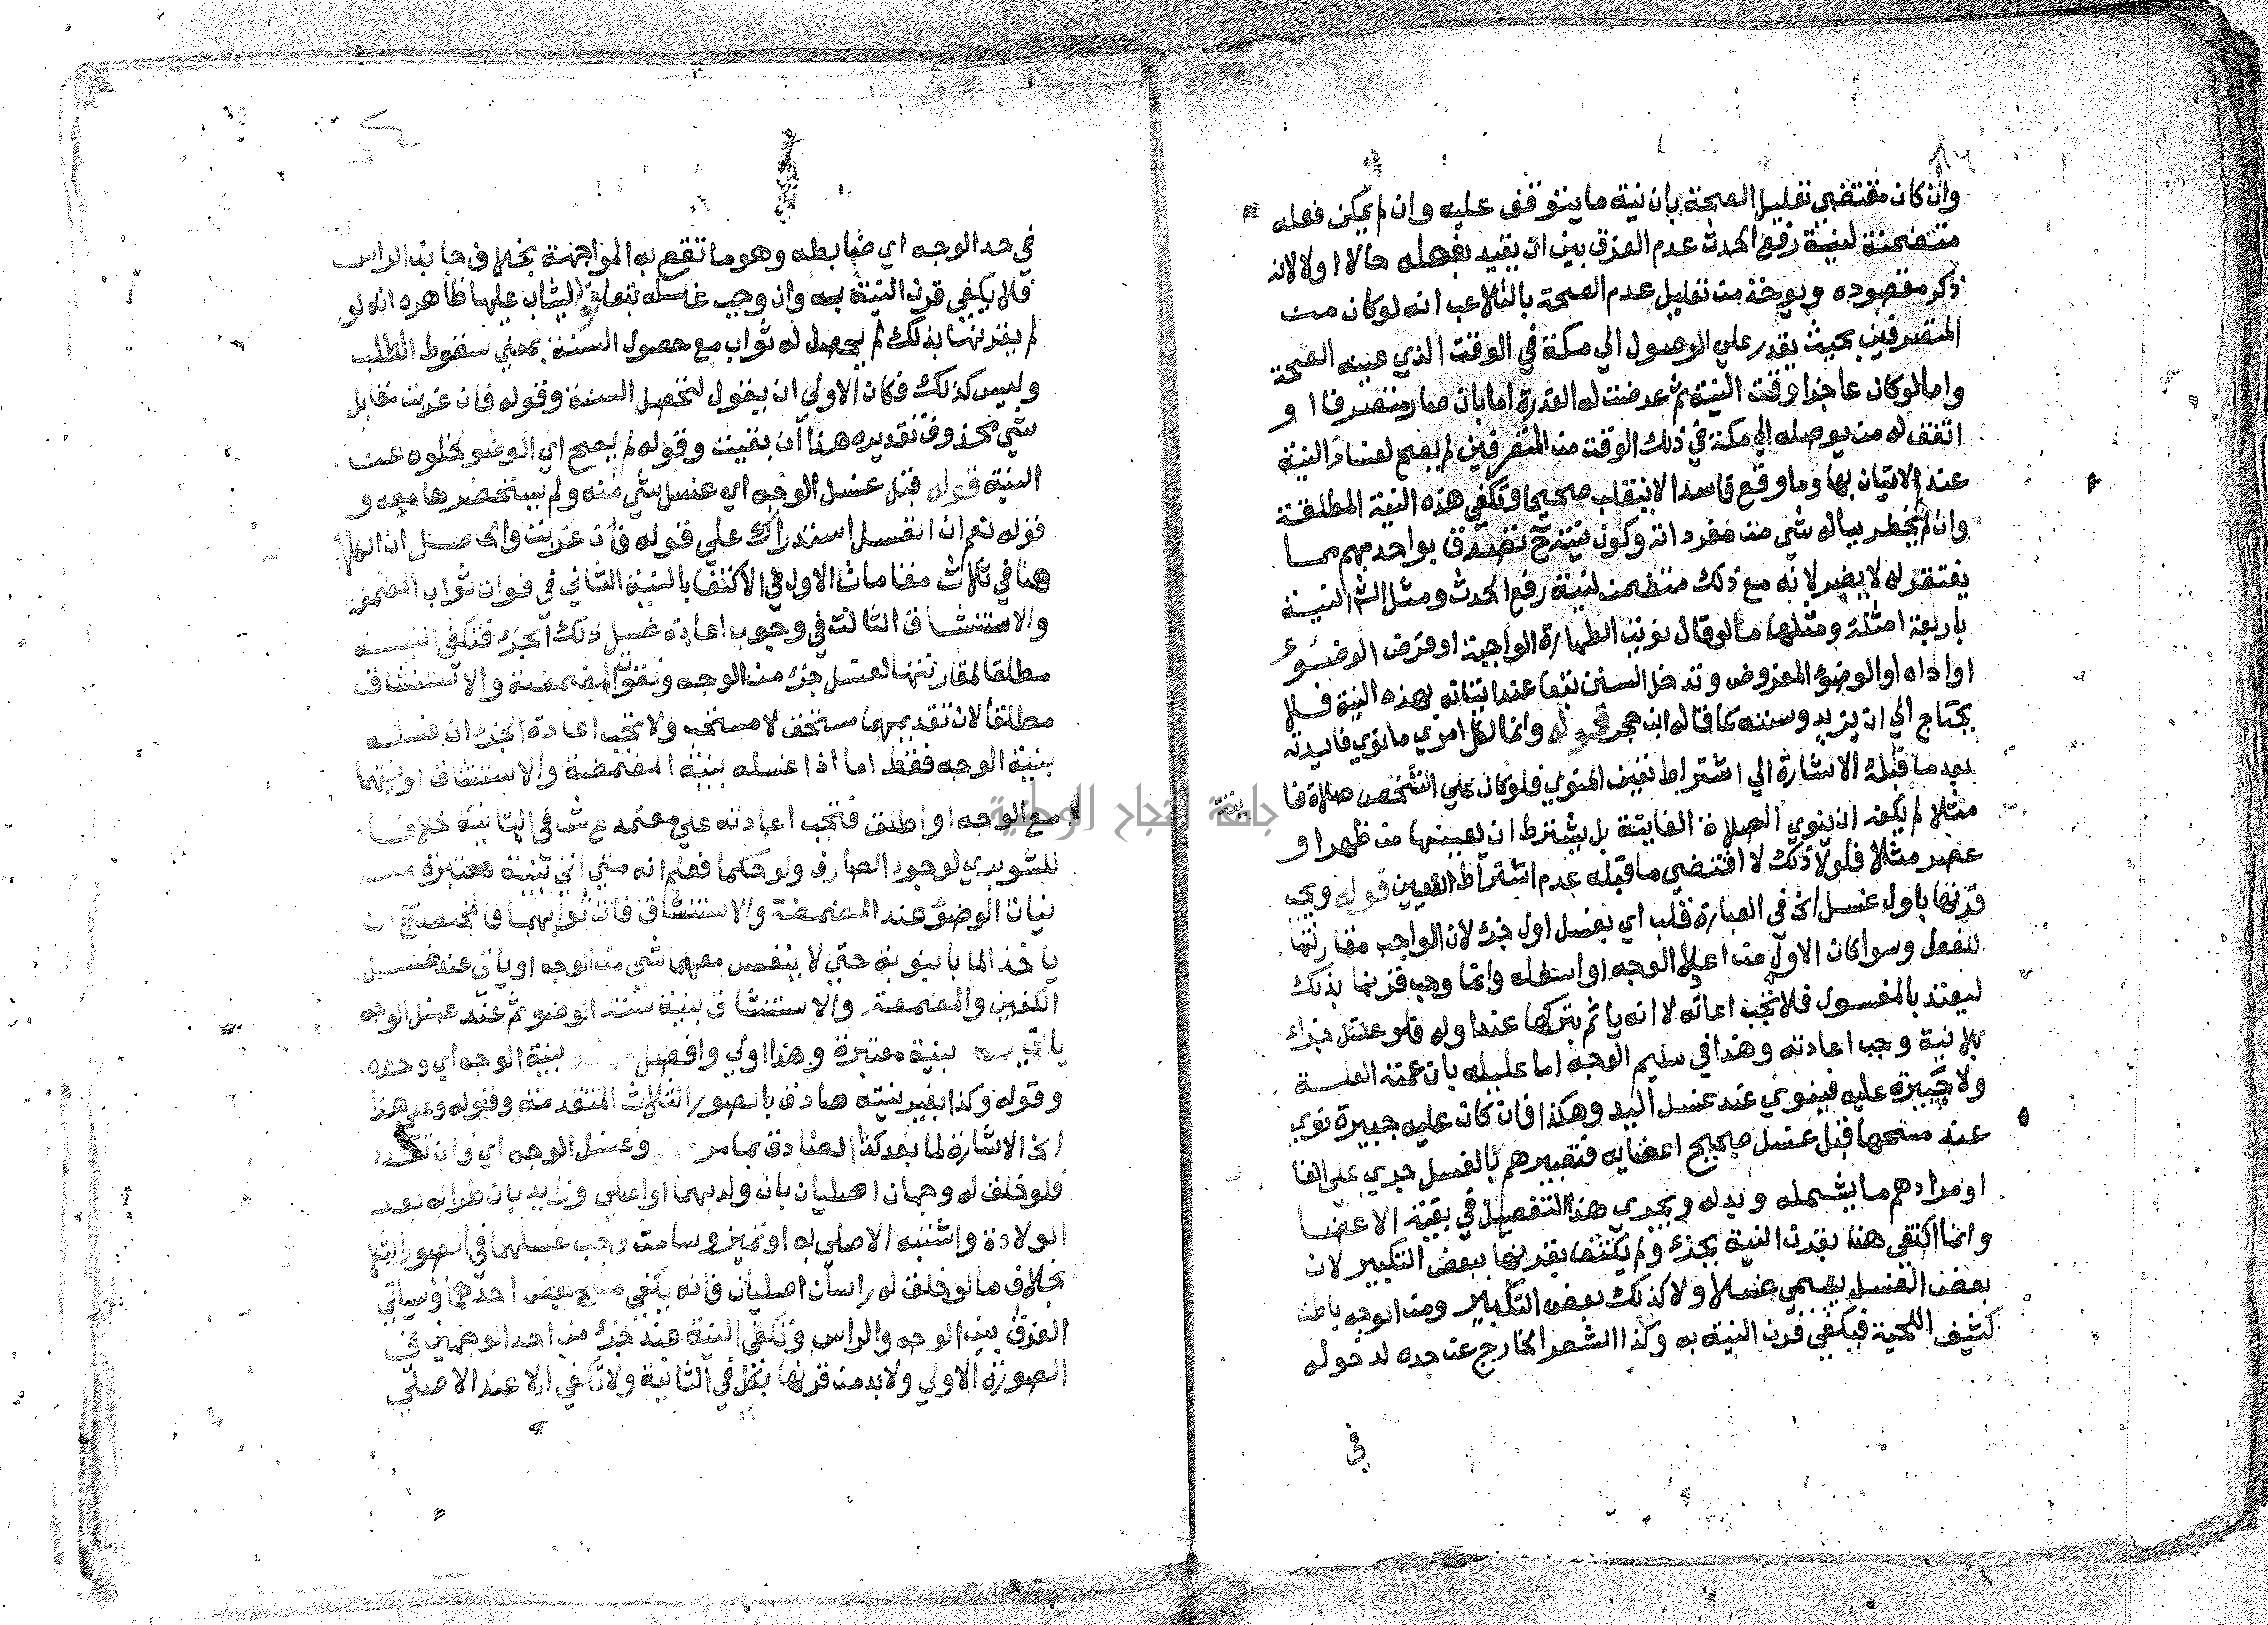 وان كان مقتضي تعليل الصحة بان نية ما يتوقف عليه وان لم يمكن فعله
متضمنة لنية رفع الحدث عدم الفرق بين ان يقيد بفعله حالا او لا لانه
ذكر مقصوده ويوخذ من تعليل عدم الصحة بالتلاعب انه لو كان من
المتصرفين بحيث يقدر علي الوصول الي مكة في الوقت الذي عينه الصحة
واما لو كان عاجزا وقت النية ثم عرضت له القدرة اما بان صار متصرفا او
اتفق له من يوصله الي مكة في ذلك الوقت من المتصرفين لم يصح لفساد النية
عند الاتيان بها وما وقع فاسدا لا ينقلب صحيحا وتكفي هذه النية المطلقة
وان لم يخطر بباله شي من مفرداته وكون نيته ح تصدق بواحد مبهم مما
يفتقر له لا يضر لانه مع ذلك متضمن لنية رفع الحدث ومثل الش النية
باربعة امثلة ومثلها ما لو قال نويت الطهارة الواجبة او فرض الوضوء
او اداه او الوضوء المفروض وتدخل السنن تبعا عند اتيانه بهذه النية فلا
يحتاج الي ان يزيد وسننه كما قاله ابن حجر قوله وانما لكل امري ما نوي فايدته
بعد ما قبله الاشارة الي اشتراط تعيين المنوي فلو كان علي الشخص صلاة فا
يتة
مثلا لم يكفه ان ينوي الصلاة الفايتة بل يشترط ان يعينها من ظهر او
عصر مثلا فلولا ذلك لا اقتضي ما قبله عدم اشتراط التعيين قوله ويجب
قرنها باول غسل الخ في العبارة قلب اي بغسل اول جزء لان الواجب مقارنتها
للفعل وسوا كان الاول من اعلا الوجه او اسفله وانما وجب قرنها بذلك
ليعتد بالمغسول فلا تجب اعادته لا انه ياثم بتركها عند اوله فلو غسل جزا
بلا نية وجب اعادته وهذا في سليم الوجه اما عليله بان عمته العلة
ولا جبيرة عليه فينوي عند غسل اليد وهكذا فان كان عليه جبيرة نوي
عند مسحها قبل غسل صحيح اعضايه فتعبيرهم بالغسل جري علي الغا
او مرادهم ما يشمله وبدله ويجري هذا التفصيل في بقية الاعضا
وانما اكتفي هنا بقرن النية بجزء ولم يكتف بقرنها ببعض التكبير لان
بعض الغسل يسمي غسلا ولا كذلك بعض التكبير ومن الوجه باطن
كثيف اللحية فيكفي قرن النية به وكذا الشعر الخارج عن حده لدخوله
في
في حد الوجه اي ضابطه وهو ما تقع به المواجهة بخلاف جانب الراس
فلا يكفي قرن النية به وان وجب غسله تبعا قو الثياب عليها ظاهره انه لو
لم يقرنها بذلك لم يحصل له ثواب مع حصول السنة بمعني سقوط الطلب
وليس كذلك فكان الاولي ان يقول لتحصل السنة وقوله فان عزبت مقابل
شي محذوف تقديره هذا ان بقيت وقوله لم يصح اي الوضو لخلوه عن
النية قوله قبل غسل الوجه اي غسل شي منه ولم يستحضرها معه و
قوله نعم ان انغسل استدراك علي قوله فان عزبت والحاصل ان الكلام
هنا في ثلاث مقامات الاول في الاكتفا بالنية الثاني في فوات ثواب المضمضة
والاستنشاق الثالث في وجوب اعادة غسل ذلك الجزء فتكفي النية
مطلقا لمقارنتها لغسل جزء من الوجه وتفوت المضمضة والاستنشاق
مطلقا لان تقديمهما مستحق لا مستحب ولا تجب اعادة الجزء ان غسله
بنية الوجه فقط اما اذا غسله بنية المضمضة والاستنشاق او بنيتهما
مع الوجه او اطلق فتجب اعادته علي معتمد ع ش في الثانية خلافا
للشوبري لوجود الصارف ولو حكما فعلم انه متي اتي بنية معتبرة من
نيات الوضوء عند المضمضة والاستنشاق فات ثوابهما فالمخلص ح ان
ياخذ الما بانبوبة حتي لا ينغسل معهما شي من الوجه او ياتي عند غسل
الكفين والمضمضة والاستنشاق بنية سنة الوضو ثم عند غسل الوجه
ياتي بنية معتبرة وهذا اولي وافضل بنية الوجه اي وحده
وقوله وكذا بغير نيته صادق بالصور الثلاث المتقدمة وقوله وعلي هذا
الخ الاشارة لما بعد كذا الصادق بما مر وغسل الوجه اي وان تعدد
فلو خلق له وجهان اصليان بان ولد بهما او اصلي وزايد بان طرا له بعد
الولادة واشتبه الاصلي به او تميز وسامت وجب غسلهما في الصور الثلاث
بخلاف ما لو خلق له راسان اصليان فانه يكفي مسح بعض احدهما وسياتي
الفرق بين الوجه والراس وتكفي النية عند جزء من احد الوجهين في
الصورة الاولي ولا بد من قرنها بكل في الثانية ولا تكفي الا عند الاصلي
جامعة النجاح الوطنية